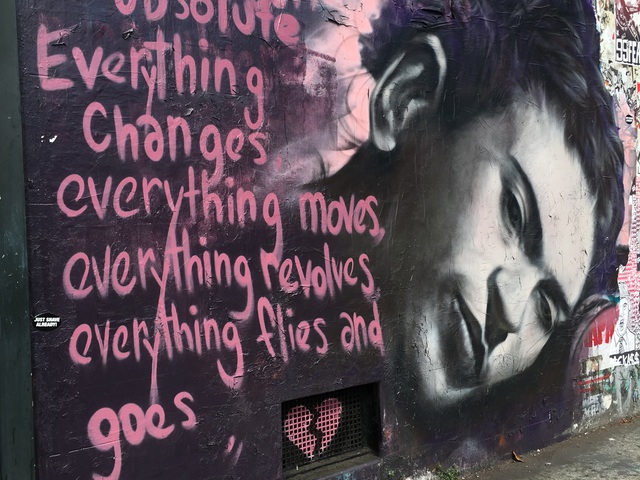 absolute
Everything
Changes,
everything moves,
everything revolves
everything flies and
goes
"
JUST SHAVE
ALREADY!